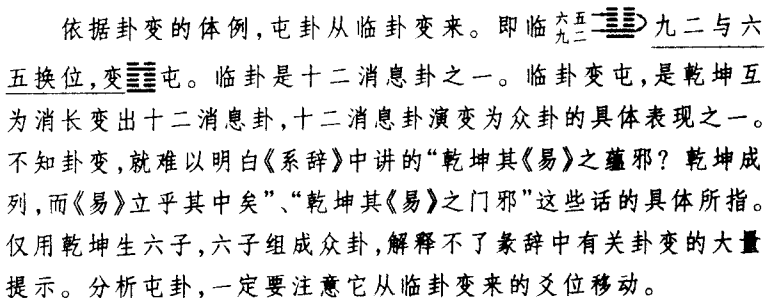 依据卦变的体例,屯卦从临卦变来。即临六五九二䷒九二与六
五换位,变䷂屯。临卦是十二消息卦之一。临卦变屯,是乾坤互
为消长变出十二消息卦,十二消息卦演变为众卦的具体表现之一。
不知卦变,就难以明白《系辞》中讲的“乾坤其《易》之蕴邪?乾坤成
列,而《易》立乎其中矣”、“乾坤其《易》之门邪”这些话的具体所指。
仅用乾坤生六子,六子组成众卦,解释不了彖辞中有关卦变的大量
提示。分析屯卦,一定要注意它从临卦变来的爻位移动。